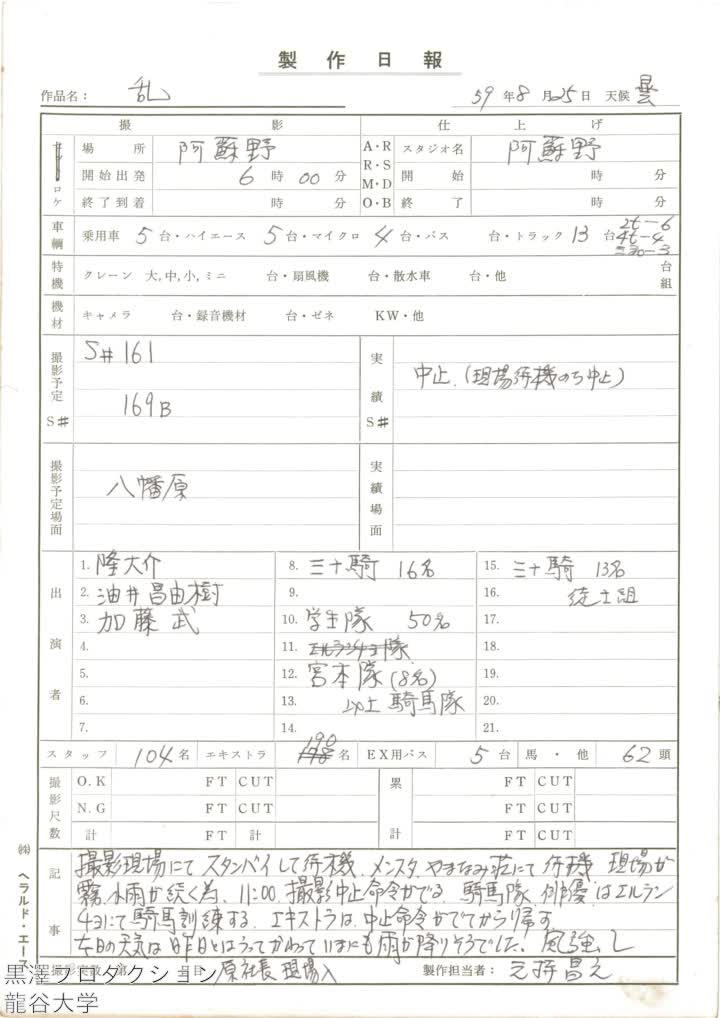 製作日報
作品名： 乱 59年8月25日 天候 曇
撮影 仕上げ
ロケ 場所 阿蘇野 A・R スタジオ名 阿蘇野
開始出発 6時00分 R・S 開始 時 分
終了到着 時 分 M・D O・B 終了 時 分
車輛 乗用車 5台・ハイエース 5台・マイクロ 4台・バス 台・トラック 13台 2t-6 4t-4
特機 クレーン 大,中,小,ミニ 台・扇風機 台・散水車 台・他 台 組
機材 キャメラ 台・録音機材 台・ゼネ KW・他
撮影予定 S# S#161 実績 S# 中止.(現場待機のち中止)
169B
撮影予定場面 八幡原 実績場面
出演者
1. 隆大介 8. 三十騎 16名 15. 三十騎 13名
2. 油井昌由樹 9. 16. 徒士組
3. 加藤武 10. 学生隊 50名 17.
4. 11. 18.
5. 12. 宮本隊(8名) 19.
6. 13. 以上騎馬隊 20.
7. 14. 21.
スタッフ 104名 エキストラ 190 名 EX用バス 5台 馬・他 62頭
撮影尺数 O.K FT CUT 累計 FT CUT
N.G FT CUT FT CUT
計 FT 計 FT CUT
記事 撮影現場にてスタンバイして待機.メンスタ.やまなみ荘にて待機 現場が
霧.小雨が続く為.11:00.撮影中止命令がでる.騎馬隊.俳優はエルラン
チョにて騎馬訓練する.エキストラは.中止命令がでてから帰す
本日の天気は昨日とはうってかわっていまにも雨が降りそうでした.風強し
撮影実数 第 日目 原社長現場入 製作担当者：
㈱ ヘラルド・エース
黒澤プロダクション
龍谷大学